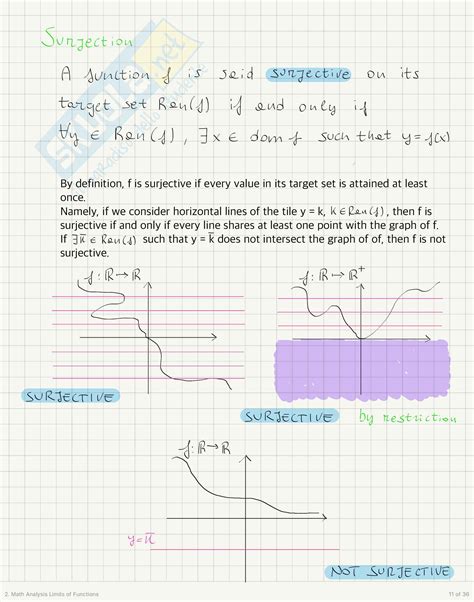 Surjection
A function f is said surjective on its
target set Ran(f) if and only if
∀y ∈ Ran(f), ∃x ∈ dom f such that y = f(x)
By definition, f is surjective if every value in its target set is attained at least
once.
Namely, if we consider horizontal lines of the tile y = k, K ∈ Ran(f), then f is
surjective if and only if every line shares at least one point with the graph of f.
If ∃k̄ ∈ Ran(f) such that y = k̄ does not intersect the graph of of, then f is not
surjective.
f: ℝ → ℝ
f: ℝ → ℝ⁺
SURJECTIVE
SURJECTIVE by restriction
f: ℝ → ℝ
y = k̄
NOT SURJECTIVE
2. Math Analysis Limits of Functions
11 of 36
skuola.net